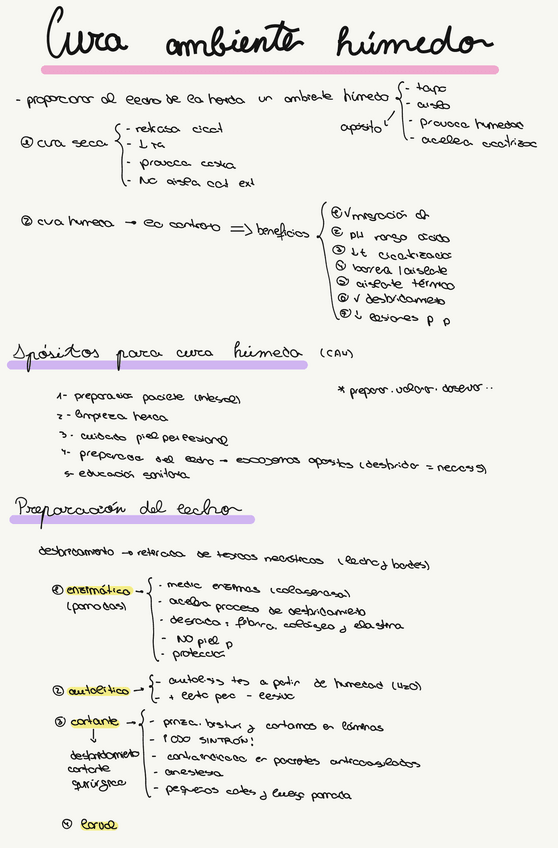 Cura ambiente húmedo
- proporcionar al lecho de la herida un ambiente húmedo
- tapo
- aislo
- provoca humedad
- acelera cicatrizac
apósito
① cura seca
- retrasa cicat
- ↓ tª
- provoca costra
- No aisla cat ext
② cura humeda → lo contrario => beneficios
① √ migración
② pH rango ácido
③ ↓t cicatrización
④ barrera / aislante
⑤ aislante térmico
⑥ √ desbridamiento
⑦ ↓ lesiones p p
Apósitos para cura húmeda (CAH)
* preparar. valorar. observar..
1- preparación paciente (integral)
2- limpieza herida
3- cuidado piel perilesional
4- preparación del lecho → escogemos apósitos (desbridar = necrosis)
5- educación sanitaria
Preparación del lecho
desbridamiento → retirada de tejidos necróticos (lecho y bordes)
① enzimático → (pomadas)
- medic enzimas (colagenasa)
- acelera proceso de desbridamiento
- degrada: fibrina, colágeno y elastina
- NO piel p
- protección
② autolítico →
- autolisis tej a partir de humedad (H2O)
- + lento pero - lesivo
③ cortante →
- pinza, bisturí y cortamos en láminas
- ! ODO SINTRÓN!
- contraindicado en pacientes anticoagulados
- anestesia
- pequeños cortes y luego pomada
↓
desbridamiento
cortante
quirúrgico
④ larval